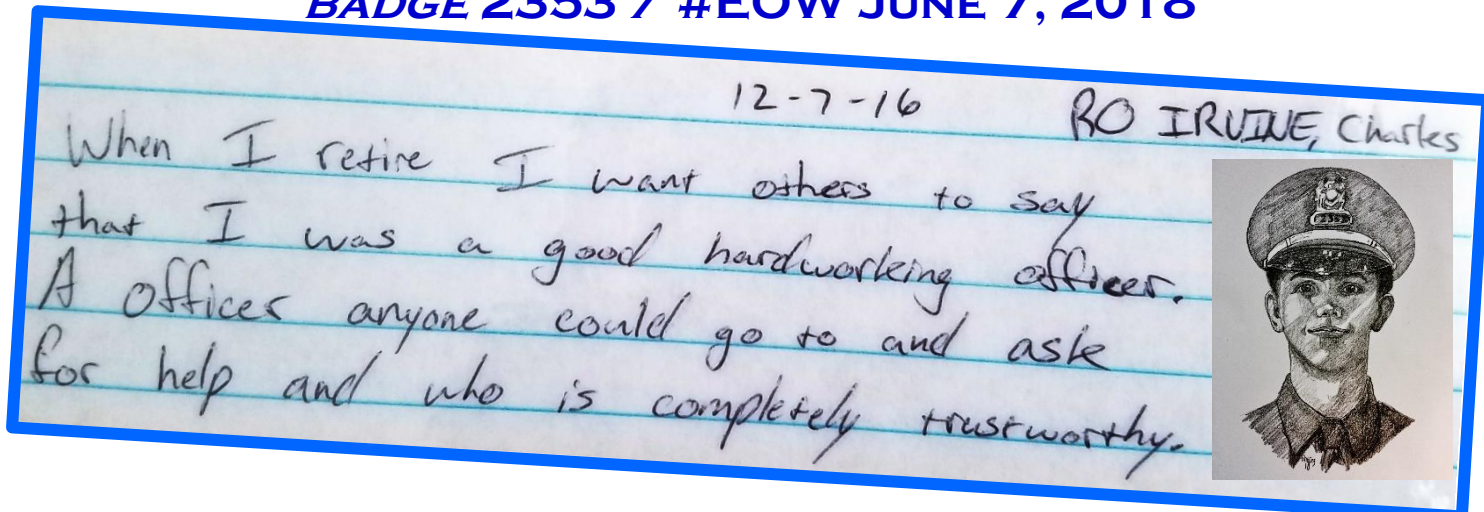 BADGE 2353 / #EOW JUNE 7, 2018
12-7-16 RO IRVINE, Charles
When I retire I want others to say
that I was a good hardworking officer.
A officer anyone could go to and ask
for help and who is completely trustworthy.
2353